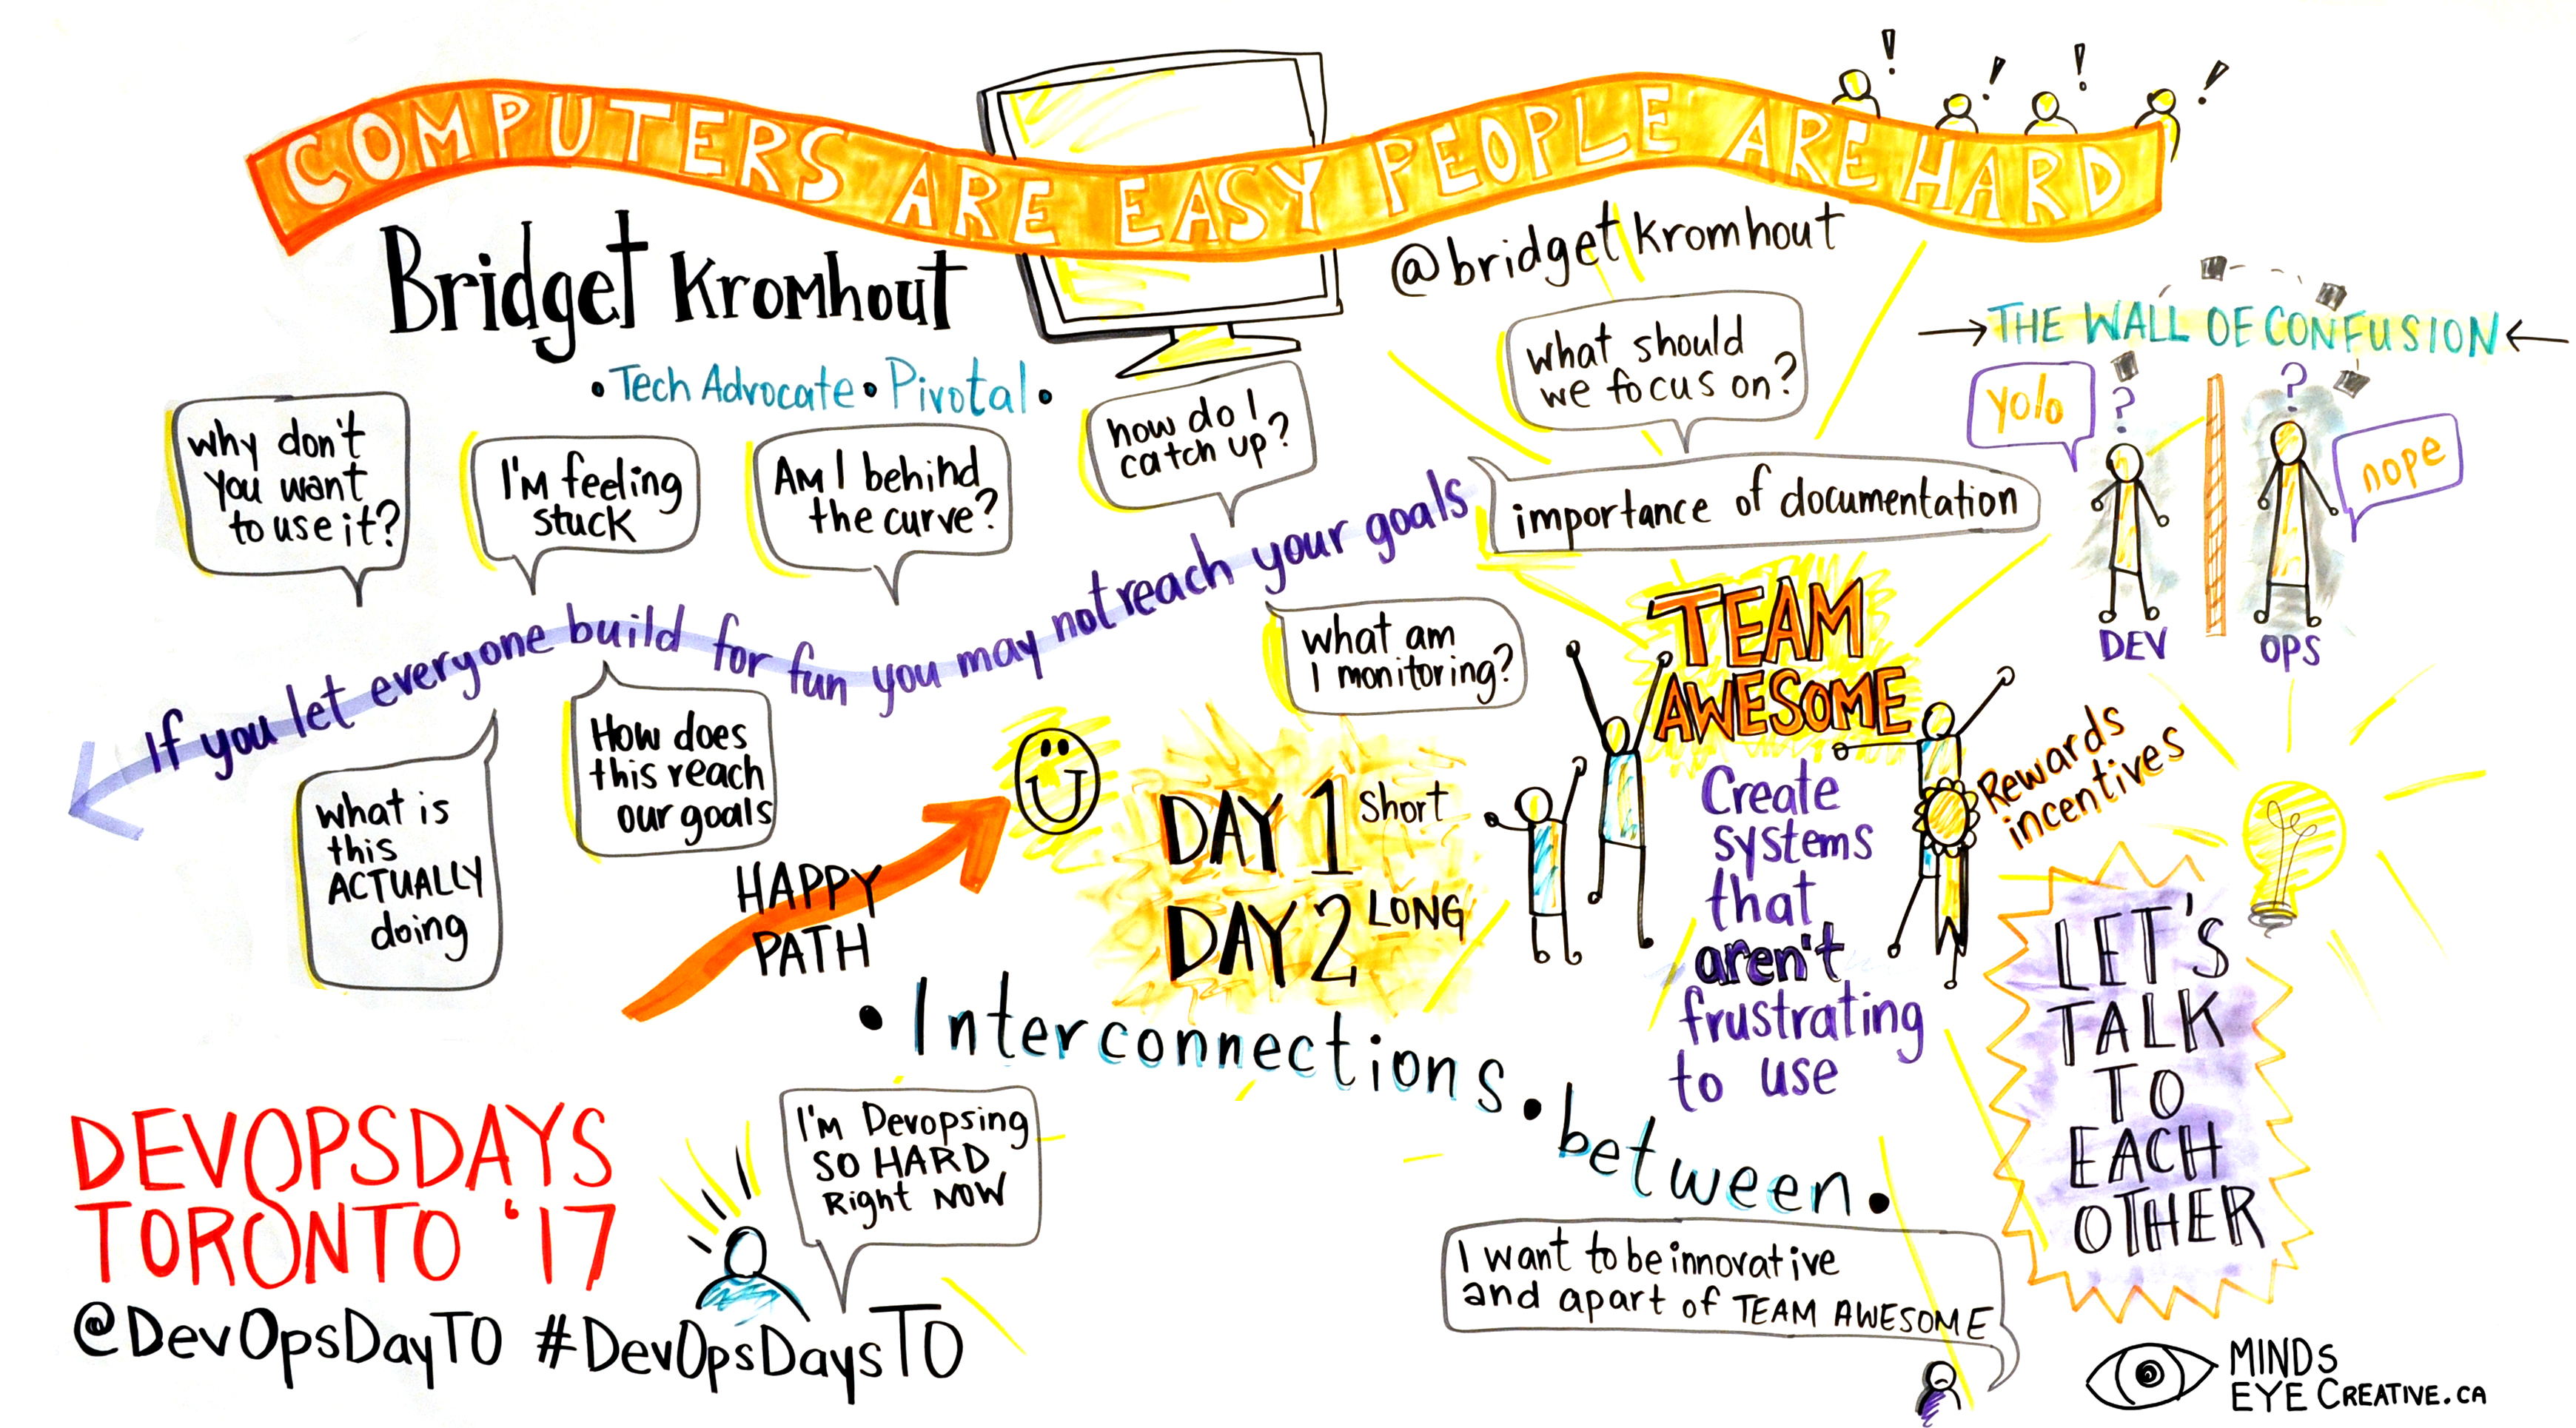 COMPUTERS ARE EASY PEOPLE ARE HARD
! ! ! !
Bridget Kromhout
@bridgetkromhout
• Tech Advocate • Pivotal •
why don't
you want
to use it?
I'm feeling
stuck
Am I behind
the curve?
how do I
catch up?
what should
we focus on?
importance of documentation
→ THE WALL OF CONFUSION ←
yolo
?
?
nope
DEV
OPS
If you let everyone build for fun you may not reach your goals
what is
this
ACTUALLY
doing
How does
this reach
our goals
what am
I monitoring?
HAPPY
PATH
DAY 1 Short
DAY 2 LONG
TEAM
AWESOME
Create
systems
that
aren't
frustrating
to use
Rewards
incentives
LET'S
TALK
TO
EACH
OTHER
• Interconnections • between •
DEVOPSDAYS
TORONTO '17
@DevOpsDayTO #DevOpsDaysTO
I'm Devopsing
SO HARD
Right NOW
I want to be innovative
and apart of TEAM AWESOME
MINDS
EYE CREATIVE.CA